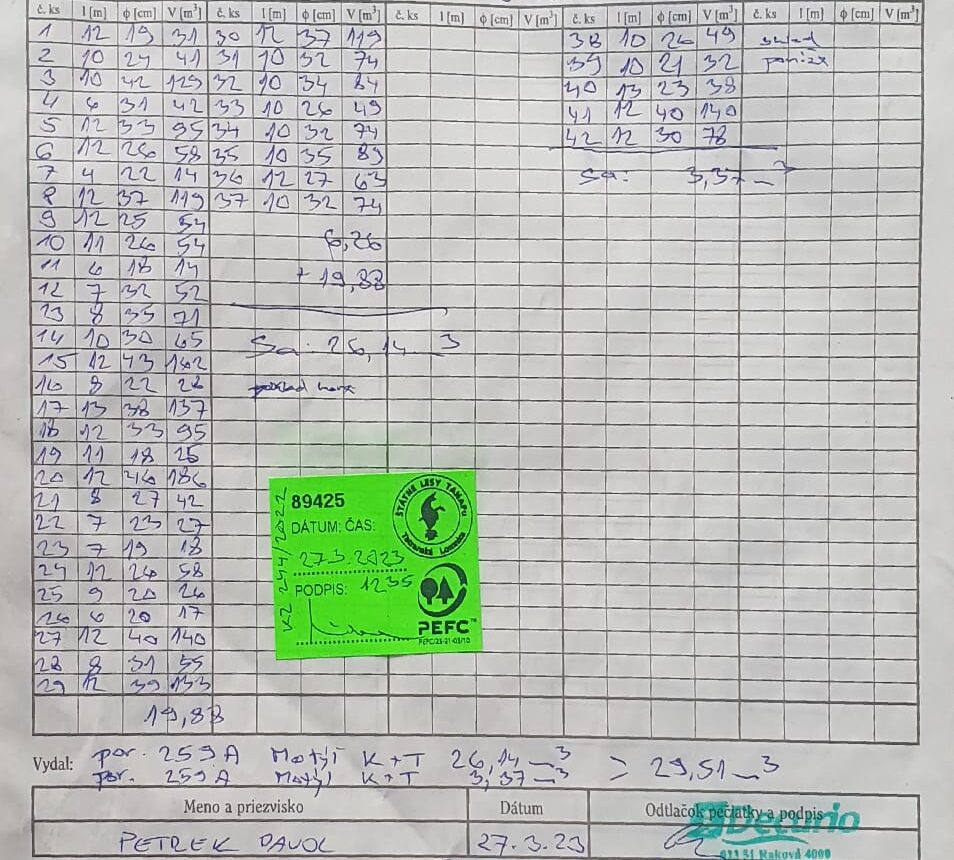 č. ks l [m] ϕ [cm] V [m³] č. ks l [m] ϕ [cm] V [m³] č. ks l [m] ϕ [cm] V [m³] č. ks l [m] ϕ [cm] V [m³] č. ks l [m] ϕ [cm] V [m³]
1 12 19 31 30 12 37 119 38 10 26 49
2 10 24 41 31 10 32 74 39 10 21 32
3 10 42 129 32 10 34 84 40 13 23 38
4 6 31 42 33 10 26 49 41 12 40 140
5 12 33 95 34 10 32 74 42 12 30 78
6 12 26 58 35 10 35 89
7 4 22 14 36 12 27 63 Sa: 3,37 m³
8 12 37 119 37 10 32 74
9 12 25 54
10 11 26 54 6,26
11 6 18 14 + 19,88
12 7 32 52
13 8 35 71
14 10 30 65 Sa: 26,14 m³
15 12 43 162
16 8 22 28
17 13 38 137
18 12 33 95
19 11 18 25
20 12 46 186
21 8 27 42
22 7 23 27
23 7 19 18
24 12 26 58
25 9 20 26
26 6 20 17
27 12 40 140
28 8 31 55
29 12 39 133
19,88
89425
DÁTUM: ČAS:
27.3.2023
PODPIS: 1235
KZ 244/2022
ŠTÁTNE LESY TANAPU
Tatranská Lomnica
PEFC™
PEFC/23-21-03/10
Vydal: por. 259A Motýľ K+T 26,14 m³ > 29,51 m³
por. 259A Motýľ K+T 3,37 m³
Meno a priezvisko Dátum Odtlačok pečiatky a podpis
PETREK PAVOL 27.3.23
Decurio
Raková 4000